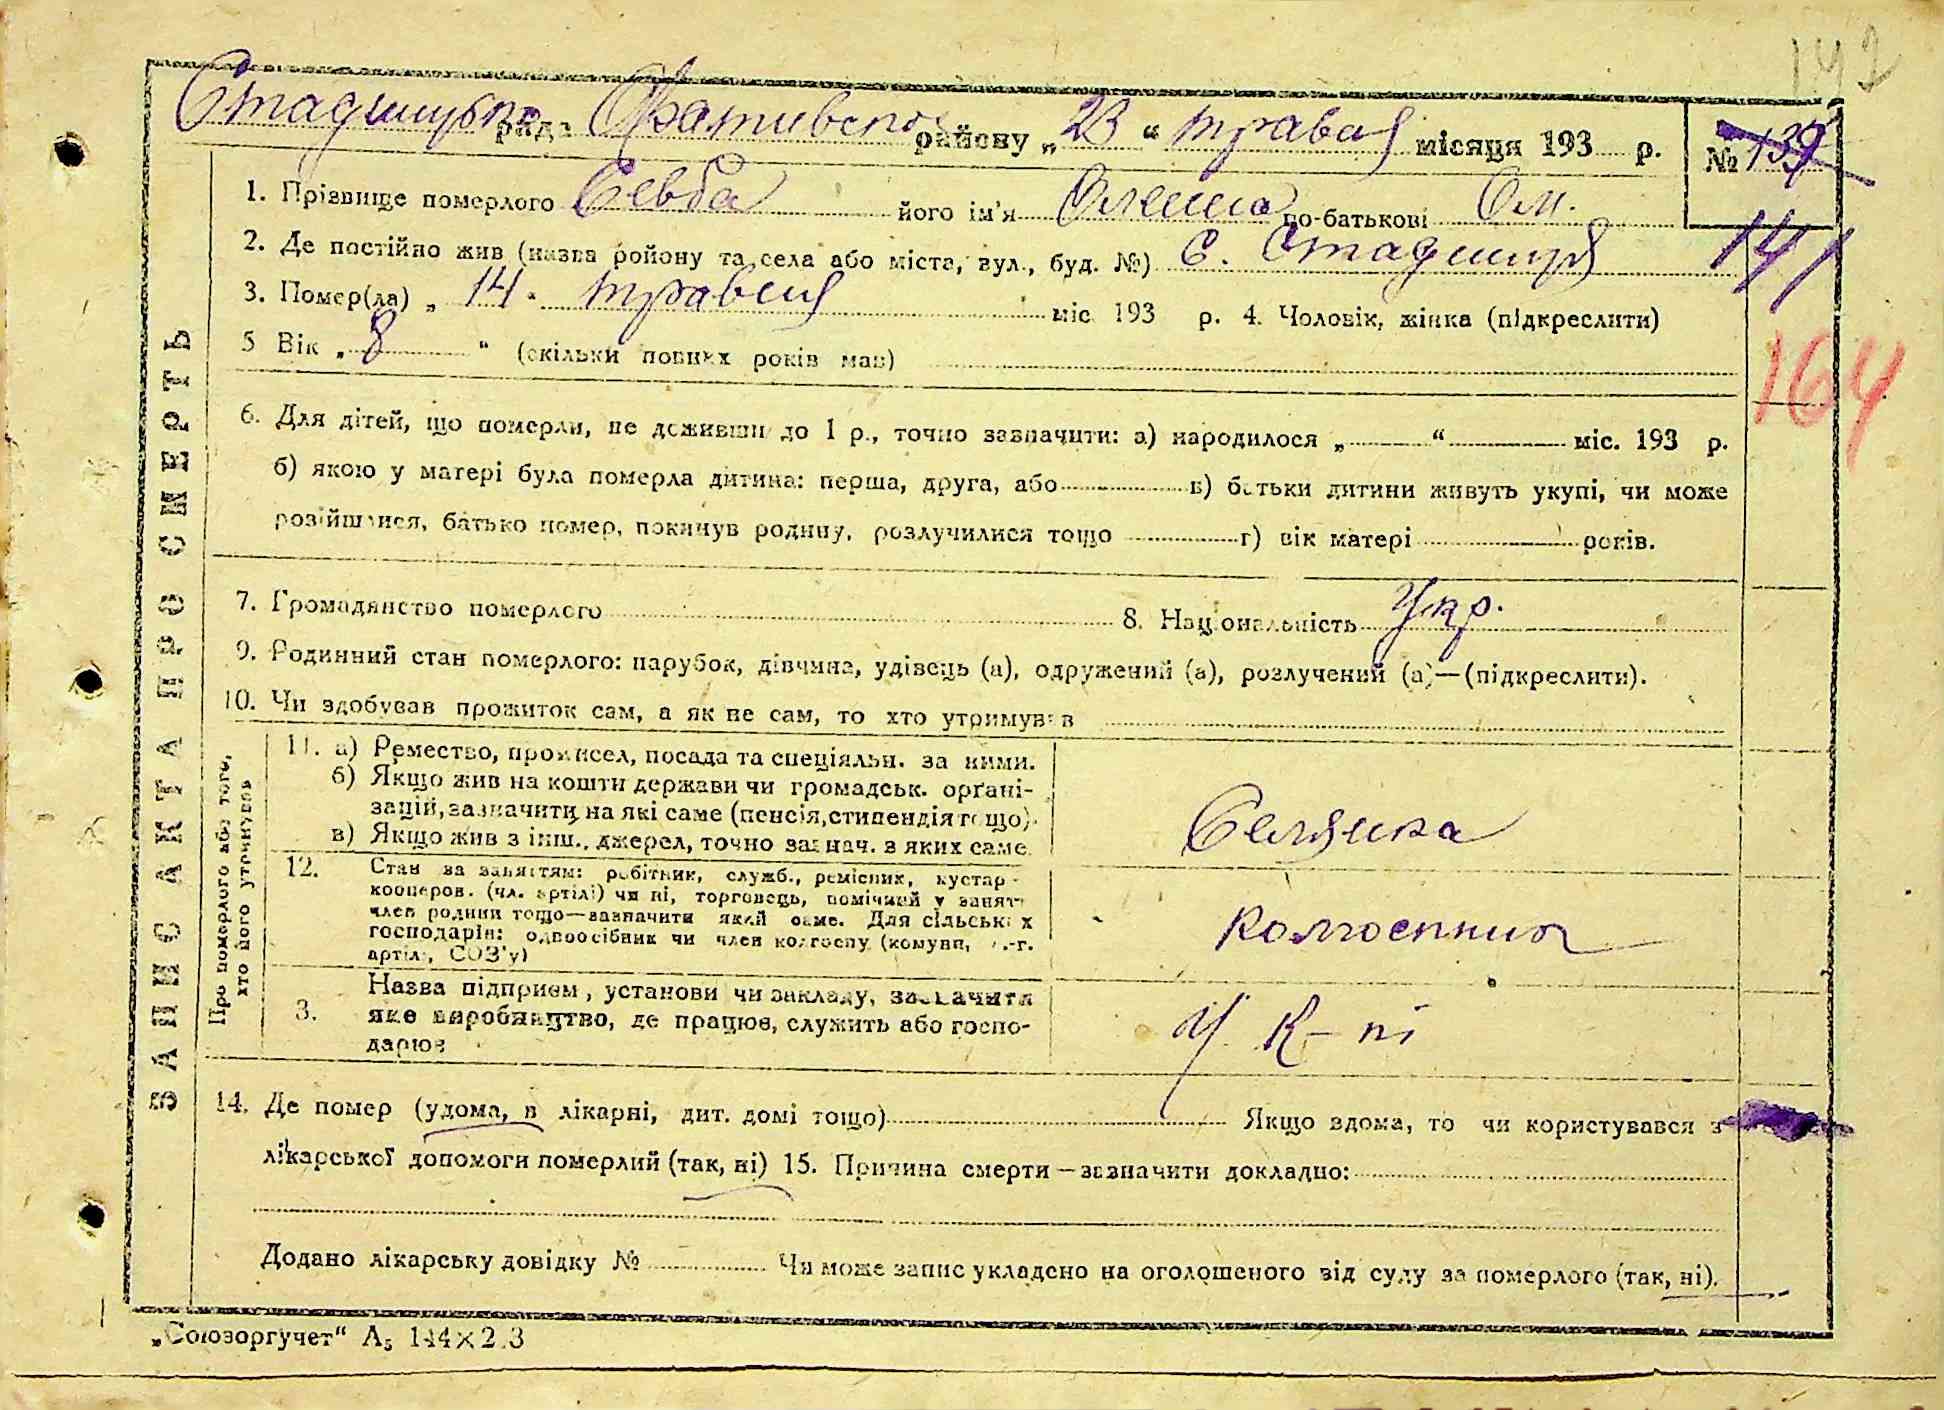 142
Стадницька рада Фастівського району „23“ травня місяця 193 р. № 139
1. Прізвище померлого Севба його ім'я Олена по-батькові Ом.
141
2. Де постійно жив (назва ройону та села або міста, вул., буд. №) С. Стадниця
3. Помер(ла) „14“ травня міс. 193 р. 4. Чоловік, жінка (підкреслити)
164
5 Вік „8“ (скільки повних років мав)
6. Для дітей, що померли, не доживши до 1 р., точно зазначити: а) народилося „ “ міс. 193 р.
б) якою у матері була померла дитина: перша, друга, або в) батьки дитини живуть укупі, чи може
розійшлися, батько помер, покинув родину, розлучилися тощо г) вік матері років.
7. Громадянство померлого 8. Національність Укр.
9. Родинний стан померлого: парубок, дівчина, удівець (а), одружений (а), розлучений (а)—(підкреслити).
10. Чи здобував прожиток сам, а як не сам, то хто утримував
ЗАПИС АКТА ПРО СМЕРТЬ
Про померлого або того,
хто його утримував
11. а) Ремество, промисел, посада та спеціяльн. за ними.
б) Якщо жив на кошти держави чи громадськ. орґані-
зацій, зазначити на які саме (пенсія, стипендія тощо).
в) Якщо жив з інш., джерел, точно зазнач. з яких саме
Селянка
12. Стан за заняттям: робітник, служб., ремісник, кустар
кооперов. (чл. артілі) чи ні, торговець, помічний у занят
член родини тощо—зазначити який саме. Для сільських
господарів: одноосібник чи член колгоспу (комуни, с.-г.
артілі, СОЗ'у)
колгоспник
3. Назва підприєм., установи чи закладу, зазначити
яке виробництво, де працює, служить або госпо-
дарює
У к-пі
14. Де помер (удома, в лікарні, дит. домі тощо) Якщо вдома, то чи користувався з
лікарської допомоги померлий (так, ні) 15. Причина смерти—зазначити докладно:
Додано лікарську довідку № Чи може запис укладено на оголошеного від суду за померлого (так, ні).
„Союзоргучет“ А5 144×2.3